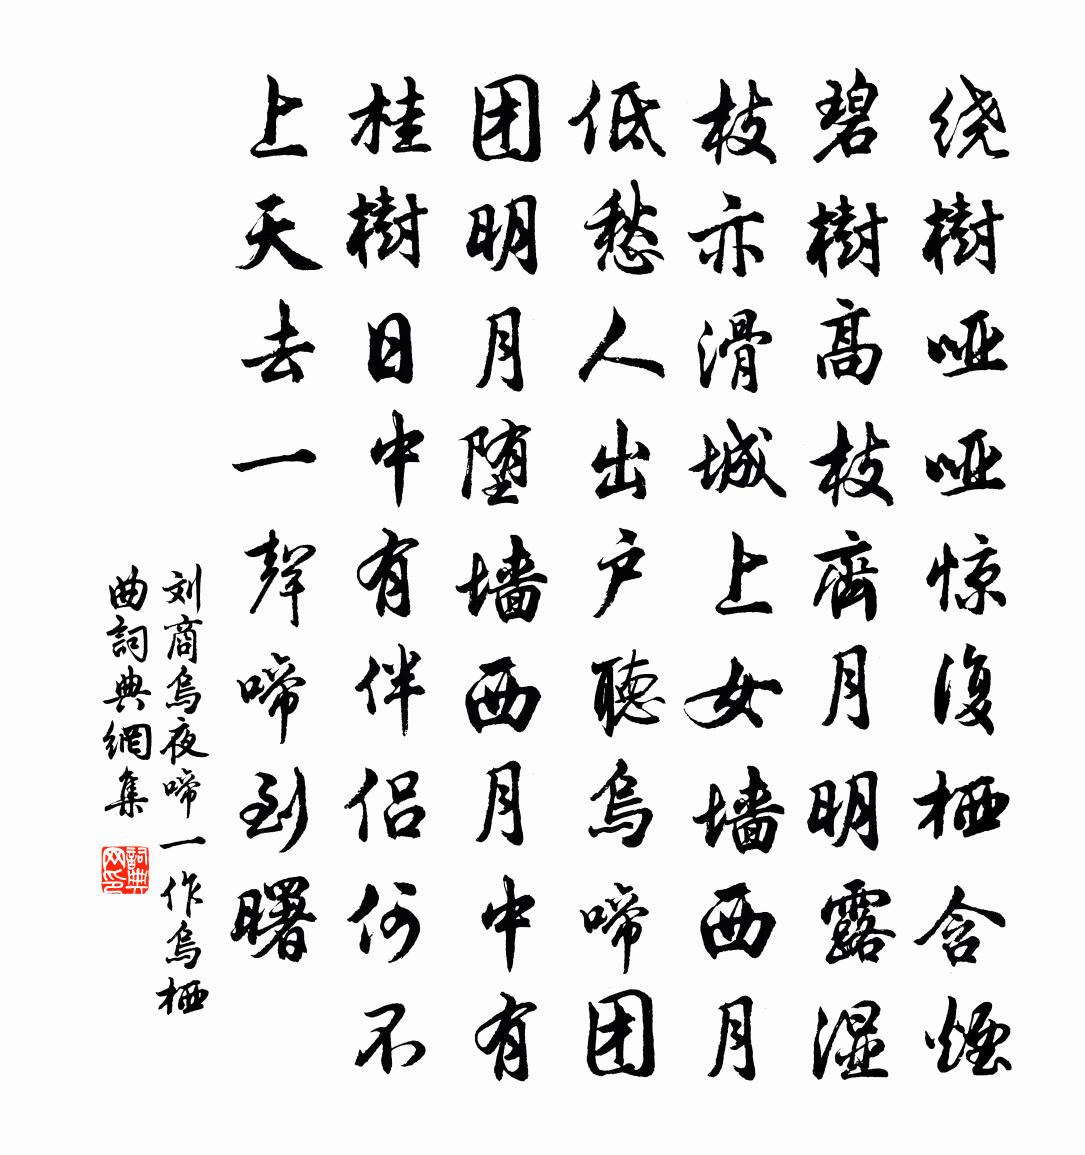 绕樹哑哑惊復栖含煙
碧樹高枝齊月明露湿
枝亦滑城上女墙西月
低愁人出户聽烏啼团
团明月堕墙西月中有
桂樹日中有伴侣何不
上天去一聲啼到曙
刘商烏夜啼一作烏栖
曲詞典網集
詞典网印